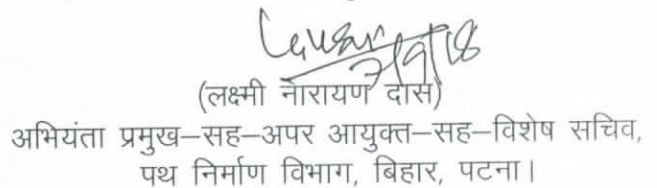 7/9/18
(लक्ष्मी नारायण दास)
अभियंता प्रमुख–सह–अपर आयुक्त–सह–विशेष सचिव,
पथ निर्माण विभाग, बिहार, पटना।